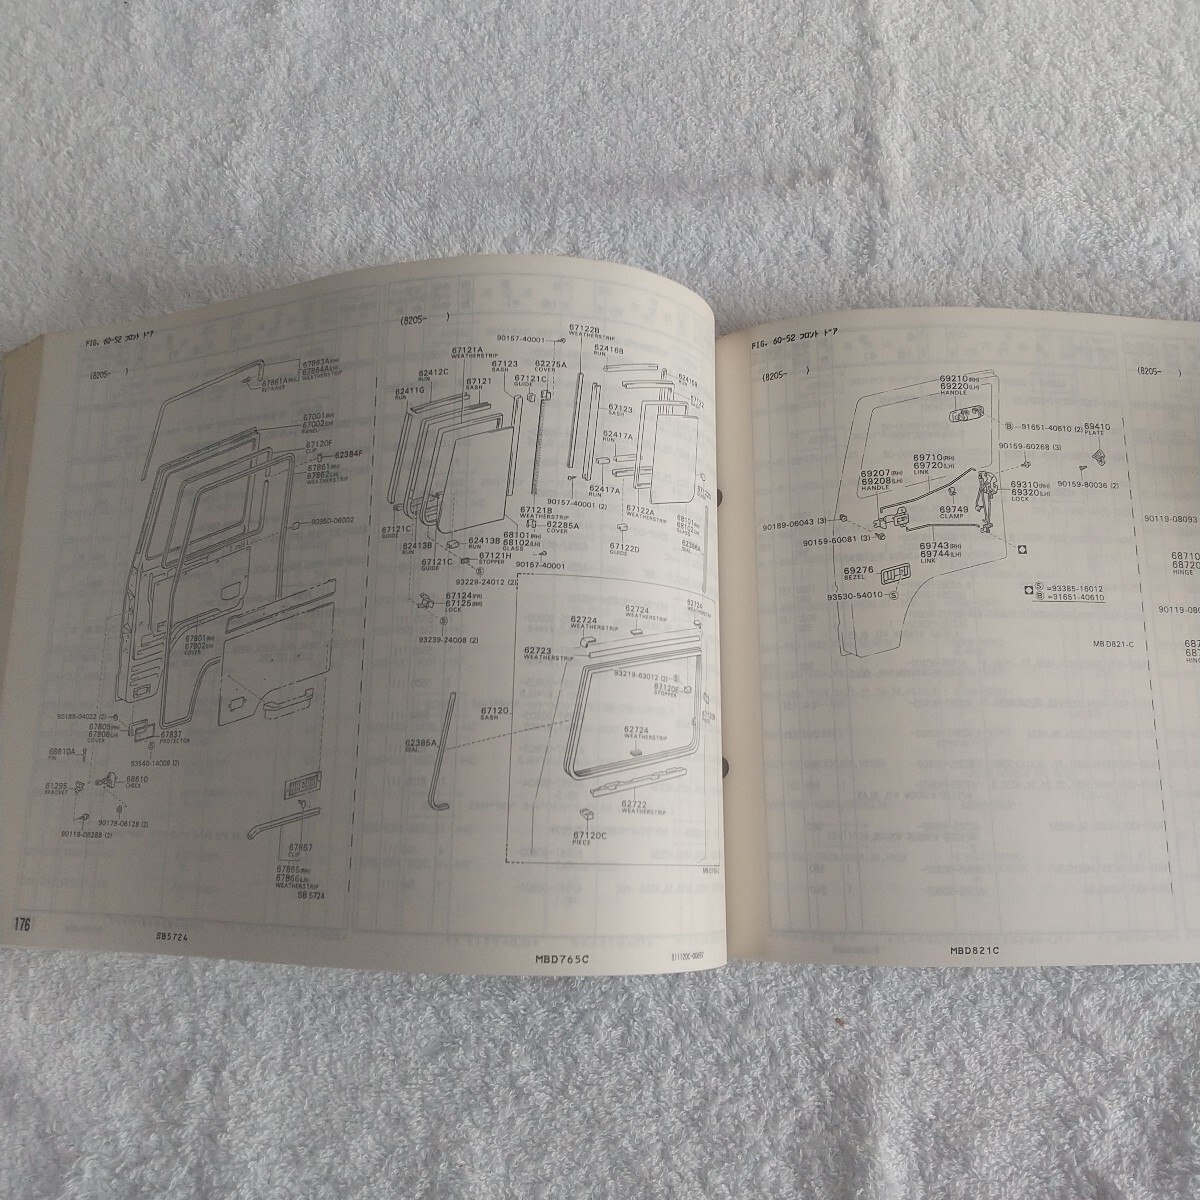 FIG. 60-52 フロント ドア
(8205-      )
67863A(RH)
67864A(LH)
WEATHERSTRIP
67861A(RH)
RETAINER
67001(RH)
67002(LH)
PANEL
67120F
CLIP
62384F
67861(RH)
67862(LH)
WEATHERSTRIP
90950-06002
67801(RH)
67802(LH)
COVER
67805(RH)
67806(LH)
COVER
67837
PROJECTOR
S
93540-14008 (2)
68610A
PIN
61295
BRACKET
68610
CHECK
90179-06128 (2)
67867
CLIP
67865(RH)
67866(LH)
WEATHERSTRIP
SB5724
176
SB5724
(8205-      )
67122B
WEATHERSTRIP
90157-40001
62416B
RUN
67121A
WEATHERSTRIP
67123
SASH
62275A
COVER
62412C
RUN
67121
SASH
67121C
GUIDE
62411G
RUN
67123
SASH
62417A
RUN
62417A
RUN
90157-40001 (2)
67121B
WEATHERSTRIP
67122A
WEATHERSTRIP
62285A
COVER
68101(RH)
68102(LH)
GLASS
62386A
SEAL
67121C
GUIDE
62413B
RUN
62413B
RUN
68101(RH)
68102(LH)
GLASS
67122D
GUIDE
67121C
GUIDE
67121H
STOPPER
90157-40001
S
93229-24012 (2)
67124(FR)
67125(RR)
LOCK
S
93239-24008 (2)
62724
WEATHERSTRIP
62724
WEATHERSTRIP
62724
62723
WEATHERSTRIP
93219-63012 (2)
S
67120E
STOPPER
67120
SASH
62385A
SEAL
62724
WEATHERSTRIP
62722
WEATHERSTRIP
67120C
PIECE
MBD765C
FIG. 60-52 フロント ドア
(8205-      )
(8205-
69210(RH)
69220(LH)
HANDLE
B
91651-40610 (2)
69410
PLATE
90159-60268 (3)
69710(RH)
69720(LH)
LINK
69207(RH)
69208(LH)
HANDLE
90159-80036 (2)
69310(RH)
69320(LH)
LOCK
69749
CLAMP
90189-06043 (3)
90119-08093
90159-60081 (3)
69743(RH)
69744(LH)
LINK
69276
BEZEL
93530-54010
S
S =93385-16012
B =91651-40610
68710
68720
HINGE
MBD821-C
HINGE
MBD821C